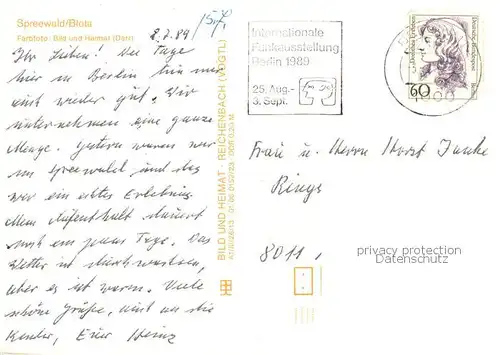 Spreewald/Blota
Farbfoto: Bild und Heimat (Darr)
2.7.89
157
Ihr Lieben! Die Tage
hier in Berlin tun mir
mit wieder gut. Wir
unternehmen eine ganze
Menge. Gestern waren wir
im Spreewald und das
war ein echtes Erlebnis.
Mein Aufenthalt dauert
noch ein paar Tage. Das
Wetter ist durchwachsen,
aber es ist warm. Viele
schöne Grüße, auch an die
Kinder, Euer Heinz
BILD UND HEIMAT · REICHENBACH (VOGTL)
Internationale
Funkausstellung
Berlin 1989
25. Aug.-
3. Sept.
60
Frau u. Herrn Horst Janke
Rings
8011
privacy protection
Datenschutz